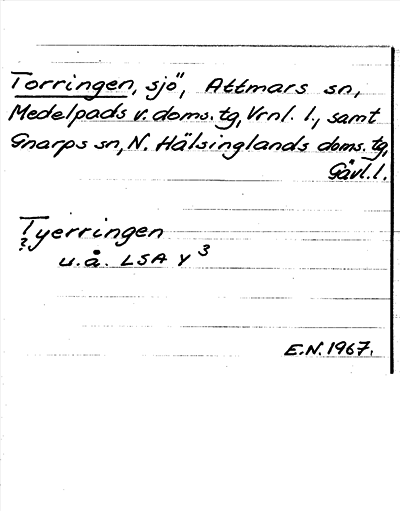 Torringen, sjö", Attmars sn,
Medelpads v. doms. tg, Vrnl. l., samt
Gnarps sn, N. Hälsinglands doms. tg,
Gävl. l.
Tyerringen
?
u.å. LSA Y 3
E.N. 1967.